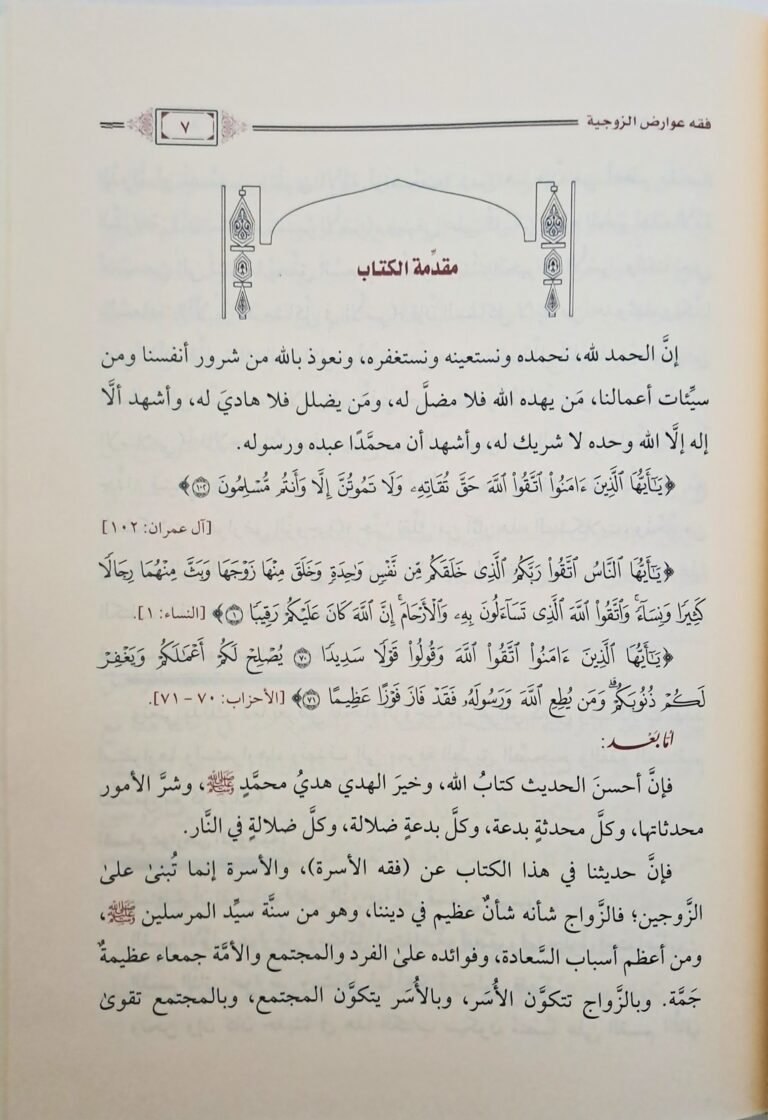 فقه عوارض الزوجية
٧
مقدِّمة الكتاب
إنَّ الحمد لله، نحمده ونستعينه ونستغفره، ونعوذ بالله من شرور أنفسنا ومن
سيِّئات أعمالنا، مَن يهده الله فلا مضلَّ له، ومَن يضلل فلا هاديَ له، وأشهد ألَّا
إله إلَّا الله وحده لا شريك له، وأشهد أن محمَّدًا عبده ورسوله.
﴿يَـٰٓأَيُّهَا ٱلَّذِينَ ءَامَنُوا۟ ٱتَّقُوا۟ ٱللَّهَ حَقَّ تُقَاتِهِۦ وَلَا تَمُوتُنَّ إِلَّا وَأَنتُم مُّسْلِمُونَ ١٠٢﴾
[آل عمران: ١٠٢]
﴿يَـٰٓأَيُّهَا ٱلنَّاسُ ٱتَّقُوا۟ رَبَّكُمُ ٱلَّذِى خَلَقَكُم مِّن نَّفْسٍ وَٰحِدَةٍ وَخَلَقَ مِنْهَا زَوْجَهَا وَبَثَّ مِنْهُمَا رِجَالًا
كَثِيرًا وَنِسَآءً ۚ وَٱتَّقُوا۟ ٱللَّهَ ٱلَّذِى تَسَآءَلُونَ بِهِۦ وَٱلْأَرْحَامَ ۚ إِنَّ ٱللَّهَ كَانَ عَلَيْكُمْ رَقِيبًا ١﴾ [النساء: ١].
﴿يَـٰٓأَيُّهَا ٱلَّذِينَ ءَامَنُوا۟ ٱتَّقُوا۟ ٱللَّهَ وَقُولُوا۟ قَوْلًا سَدِيدًا ٧٠ يُصْلِحْ لَكُمْ أَعْمَـٰلَكُمْ وَيَغْفِرْ
لَكُمْ ذُنُوبَكُمْ ۗ وَمَن يُطِعِ ٱللَّهَ وَرَسُولَهُۥ فَقَدْ فَازَ فَوْزًا عَظِيمًا ٧١﴾ [الأحزاب: ٧٠ - ٧١].
أمَّا بَعْد:
فإنَّ أحسنَ الحديث كتابُ الله، وخيرَ الهدي هديُ محمَّدٍ ﷺ، وشرَّ الأمور
محدثاتها، وكلَّ محدثةٍ بدعة، وكلَّ بدعةٍ ضلالة، وكلَّ ضلالةٍ في النَّار.
فإنَّ حديثنا في هذا الكتاب عن (فقه الأسرة)، والأسرة إنما تُبنىٰ علىٰ
الزَّوجين؛ فالزَّواج شأنه شأنٌ عظيم في ديننا، وهو من سنَّة سيِّد المرسلين ﷺ،
ومن أعظم أسباب السَّعادة، وفوائده علىٰ الفرد والمجتمع والأمَّة جمعاء عظيمةٌ
جَمَّة. وبالزَّواج تتكوَّن الأُسَر، وبالأُسَر يتكوَّن المجتمع، وبالمجتمع تقوىٰ